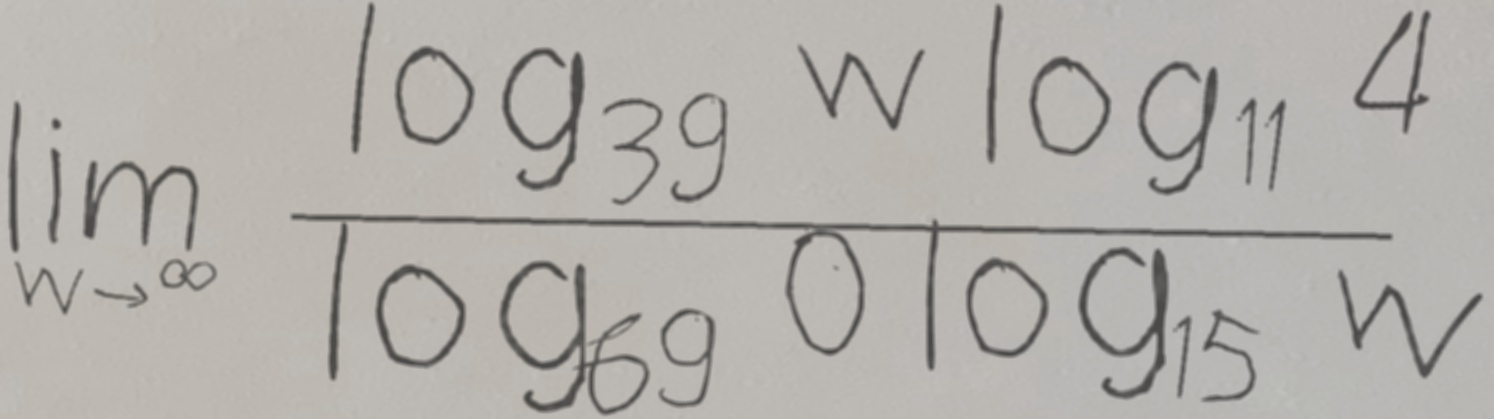 \lim_{w \to \infty} \frac{\log_{39} w \log_{11} 4}{\log_{69} 0 \log_{15} w}